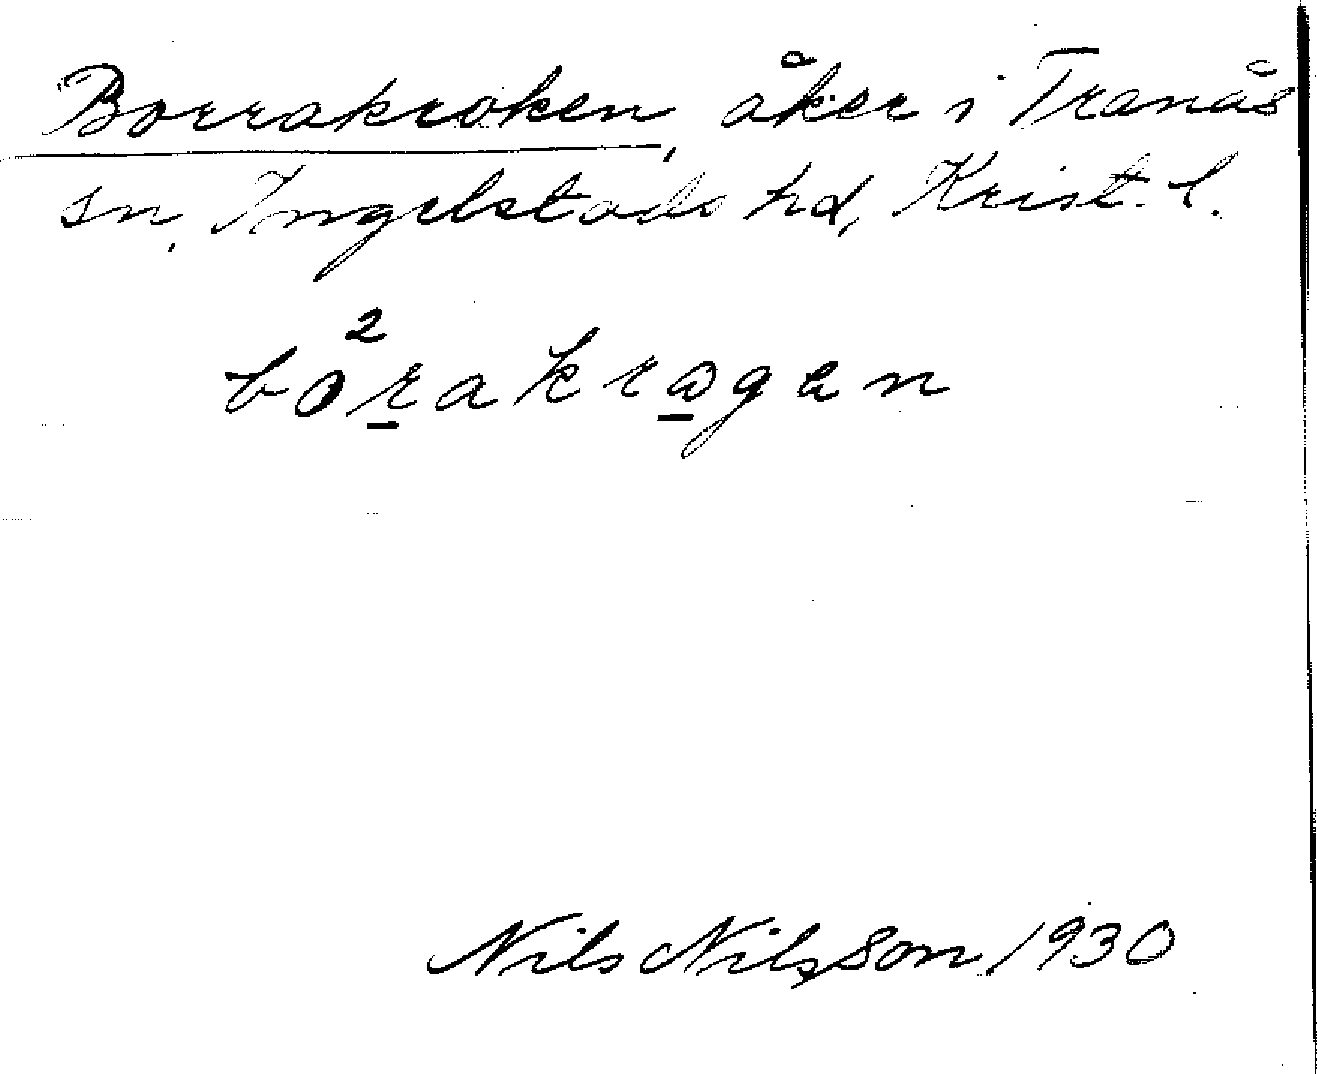 Borrakroken, åker i Tranås
sn, Ingelstads hd, Krist. l.
bo²r̲akrɷ̲gən
Nils Nilsson, 1930